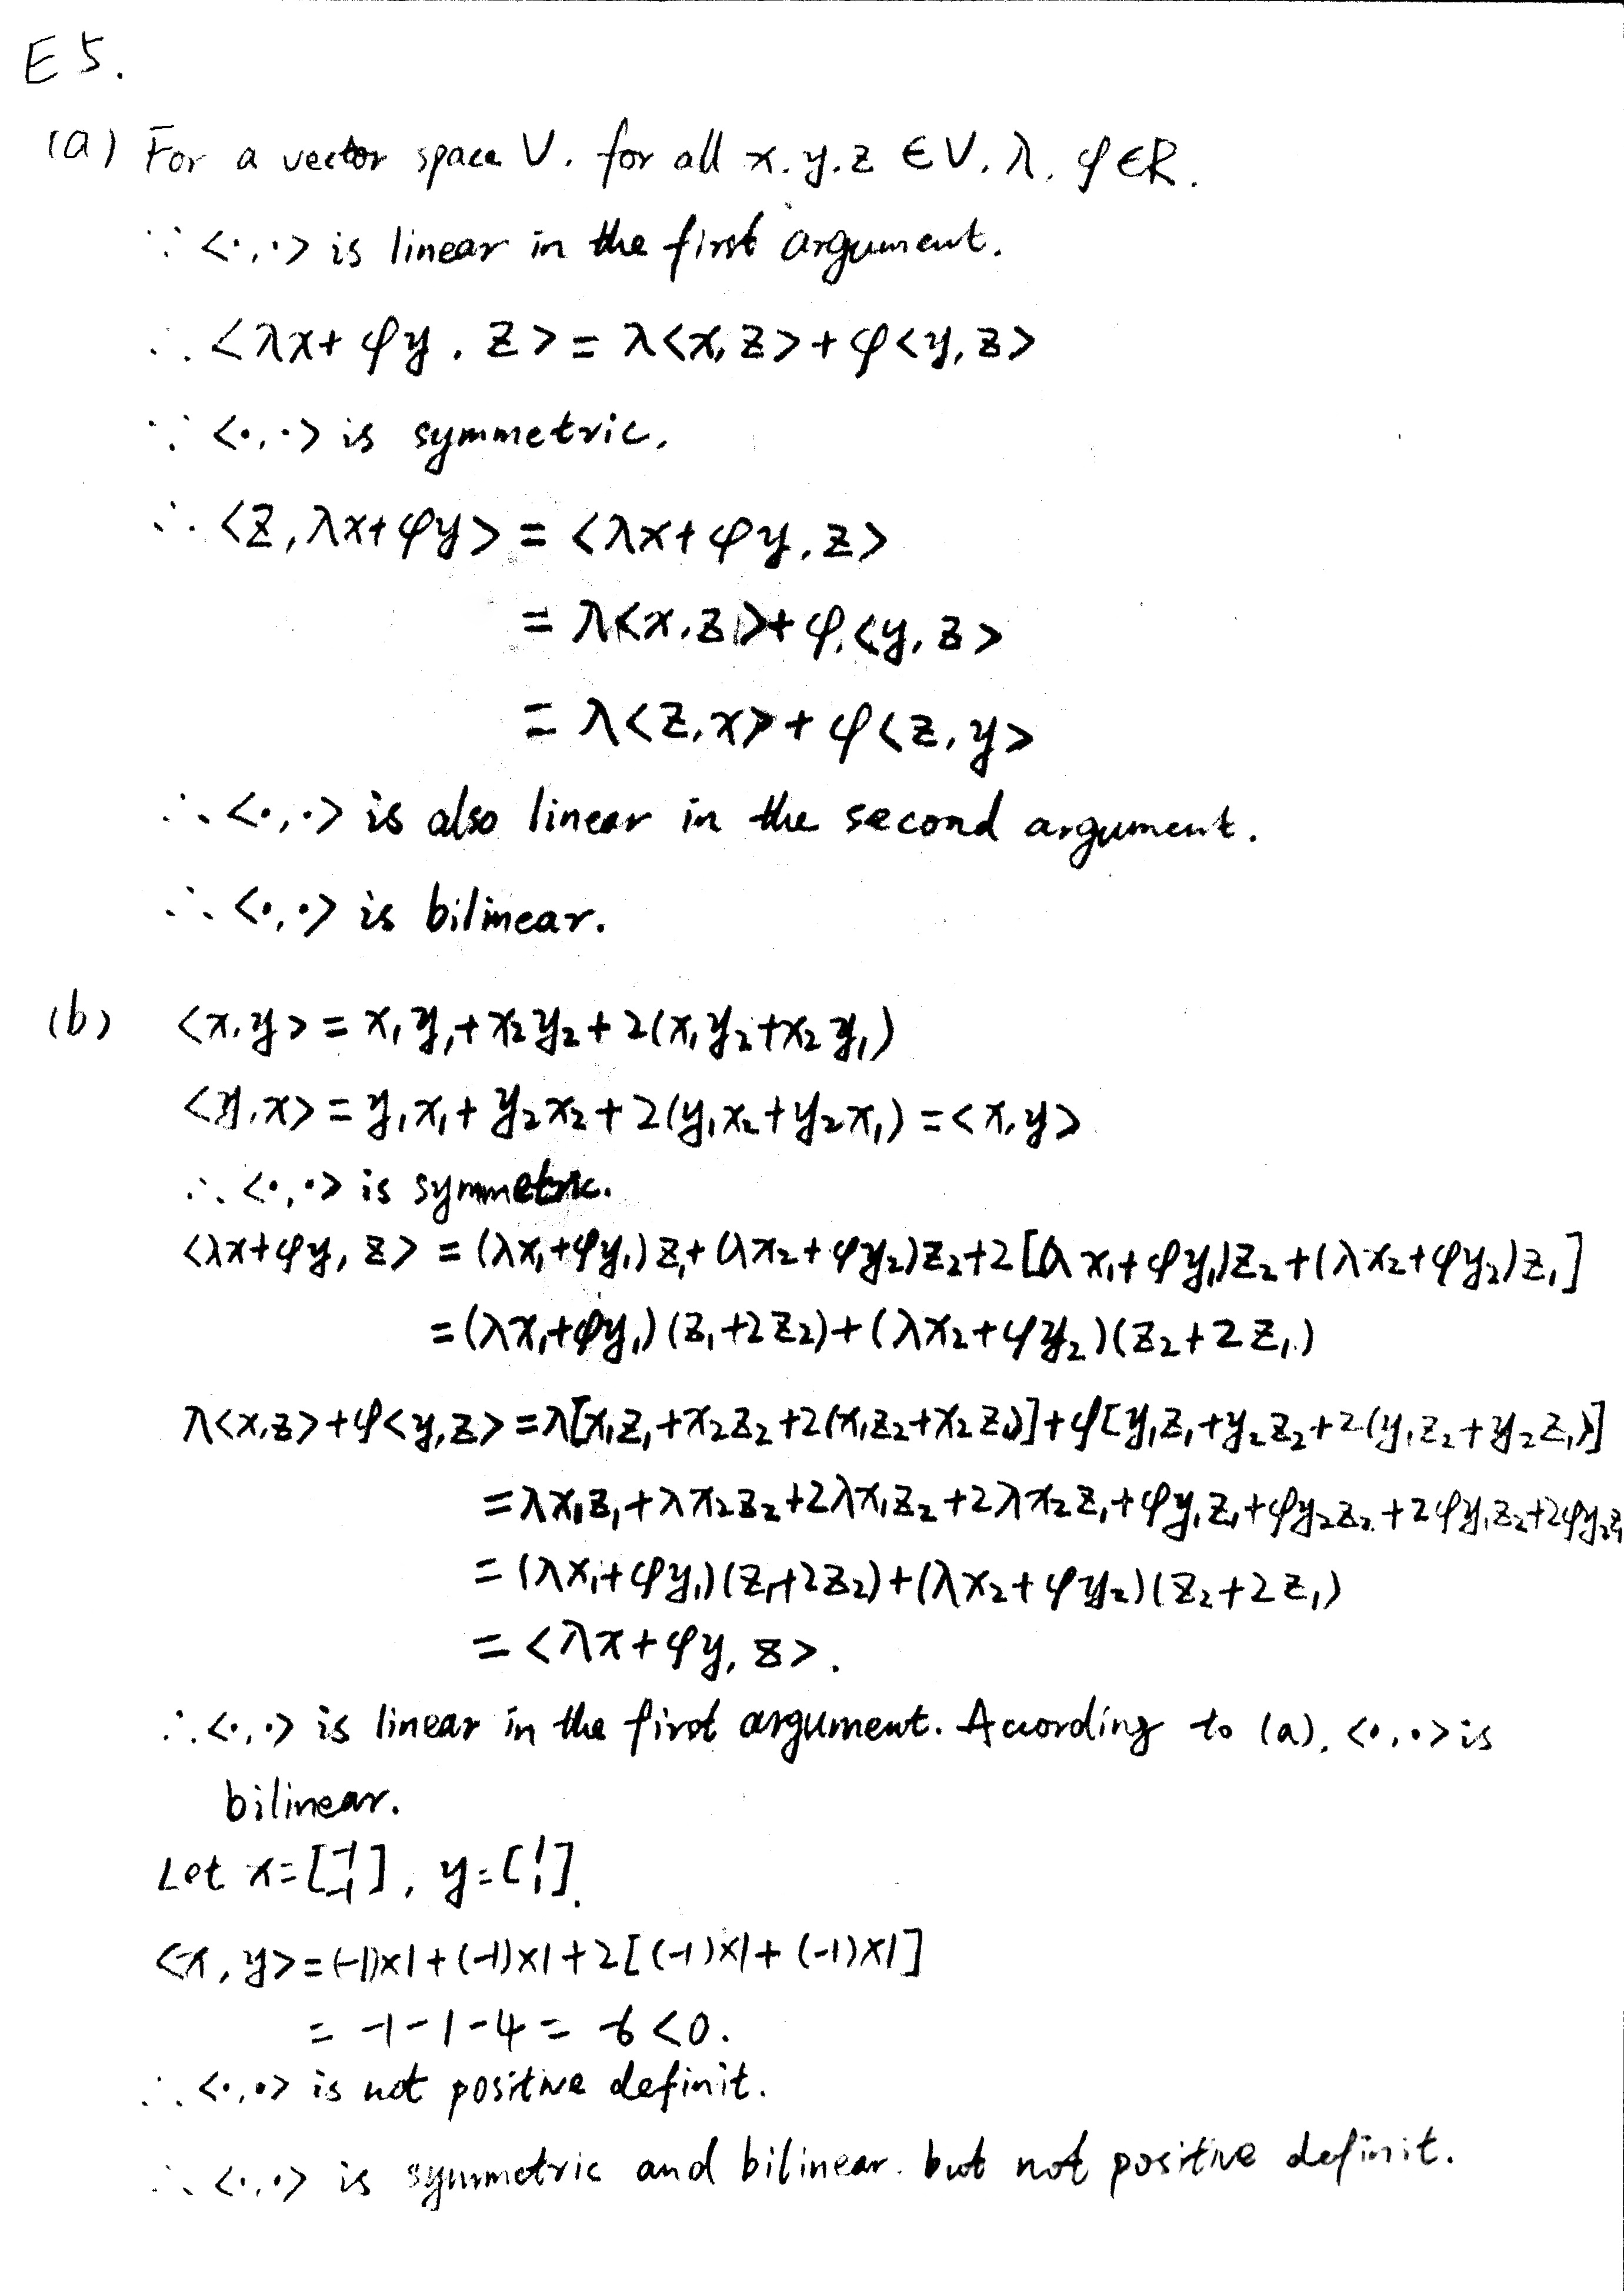 E5.
(a) For a vector space V. for all x. y. z ∈ V. λ. φ ∈ R.
∵ <·,·> is linear in the first argument.
∴ <λx+φy, z> = λ<x, z> + φ<y, z>
∵ <·,·> is symmetric.
∴ <z, λx+φy> = <λx+φy, z>
= λ<x, z> + φ<y, z>
= λ<z, x> + φ<z, y>
∴ <·,·> is also linear in the second argument.
∴ <·,·> is bilinear.
(b) <x, y> = x₁y₁+x₂y₂+2(x₁y₂+x₂y₁)
<y, x> = y₁x₁+y₂x₂+2(y₁x₂+y₂x₁) = <x, y>
∴ <·,·> is symmetric.
<λx+φy, z> = (λx₁+φy₁)z₁+(λx₂+φy₂)z₂+2[(λx₁+φy₁)z₂+(λx₂+φy₂)z₁]
= (λx₁+φy₁)(z₁+2z₂)+(λx₂+φy₂)(z₂+2z₁)
λ<x,z>+φ<y,z> = λ[x₁z₁+x₂z₂+2(x₁z₂+x₂z₁)]+φ[y₁z₁+y₂z₂+2(y₁z₂+y₂z₁)]
= λx₁z₁+λx₂z₂+2λx₁z₂+2λx₂z₁+φy₁z₁+φy₂z₂+2φy₁z₂+2φy₂z₁
= (λx₁+φy₁)(z₁+2z₂)+(λx₂+φy₂)(z₂+2z₁)
= <λx+φy, z>.
∴ <·,·> is linear in the first argument. Acording to (a), <·,·> is
bilinear.
Let x=[-1 -1], y=[1 1].
<x, y> = (-1)×1+(-1)×1+2[(-1)×1+(-1)×1]
= -1-1-4 = -6 <0.
∴ <·,·> is not positive definit.
∴ <·,·> is symmetric and bilinear. but not positive definit.